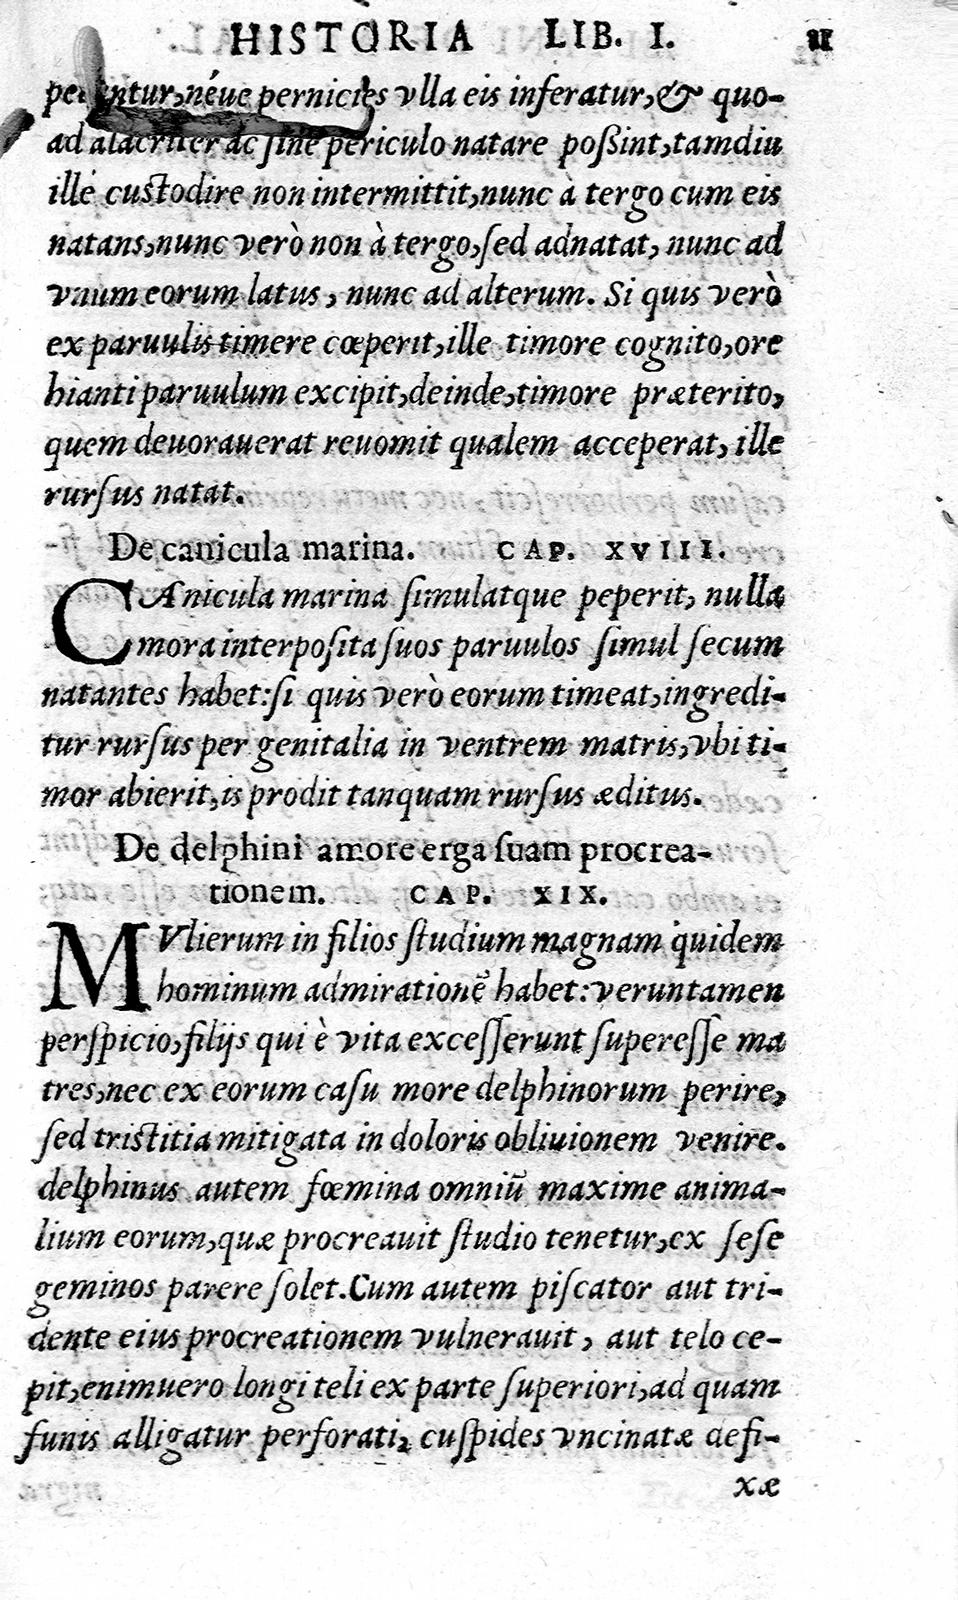 HISTORIA LIB. I. 21
néue pernicies vlla eis inferatur, & quo-
ad alacriter ac ſine periculo natare poßint, tamdiu
ille custodire non intermittit, nunc à tergo cum eis
natans, nunc verò non à tergo, ſed adnatat, nunc ad
vnum eorum latus, nunc ad alterum. Si quis verò
ex paruulis timere cœperit, ille timore cognito, ore
hianti paruulum excipit, deinde, timore præterito,
quem deuorauerat reuomit qualem acceperat, ille
rurſus natat.
De canicula marina. CAP. XVIII.
CAnicula marina ſimulatque peperit, nulla
mora interpoſita ſuos paruulos ſimul ſecum
natantes habet: ſi quis verò eorum timeat, ingredi-
tur rurſus per genitalia in ventrem matris, vbi ti-
mor abierit, is prodit tanquam rurſus æditus.
De delphini amore erga ſuam procrea-
tionem. CAP. XIX.
MVlierum in filios ſtudium magnam quidem
hominum admirationẽ habet: veruntamen
perſpicio, filijs qui è vita exceſſerunt ſupereſſe ma
tres, nec ex eorum caſu more delphinorum perire,
ſed tristitia mitigata in doloris obliuionem venire.
delphinus autem fœmina omniũ maxime anima-
lium eorum, quæ procreauit ſtudio tenetur, ex ſeſe
geminos parere ſolet. Cum autem piſcator aut tri-
dente eius procreationem vulnerauit, aut telo ce-
pit, enimuero longi teli ex parte ſuperiori, ad quam
funis alligatur perforati, cuſpides vncinatæ defi-
xæ